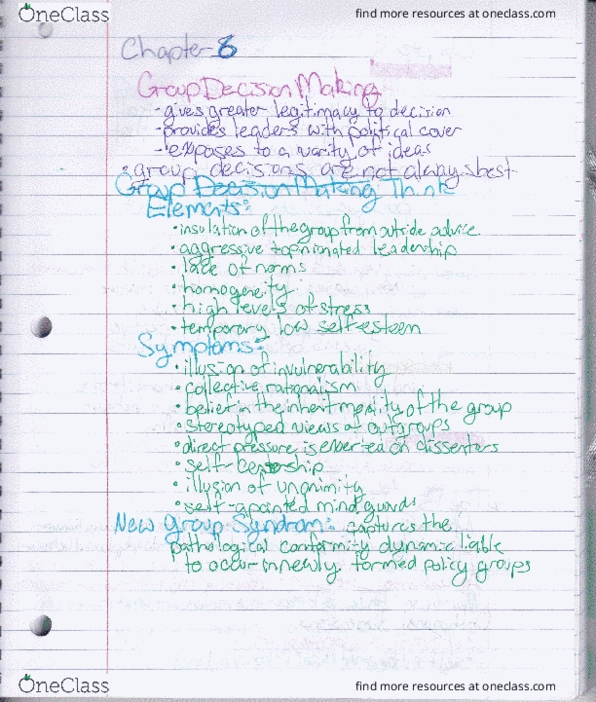 OneClass
find more resources at oneclass.com
Chapter 8
Group Decision Making
- gives greater legitimacy to decision
- provides leaders with political cover
- exposes to a varity of ideas
• group decisions are not always best
Group Decision Making Think
Elements:
• insulation of the group from outside advice
• aggressive + opinionated leadership
• lack of norms
• homogeneity
• high levels of stress
• temporary low self-esteem
Symptoms:
• illusion of invulnerability
• collective rationalism
• belief in the inherit morality of the group
• stereotyped views of outgroups
• direct pressure is exerted on dissenters
• self-
• illusion of unanimity
• self-apointed mind guards
New Group Syndrom: captures the
pathological conformity dynamic liable
to occur in newly formed policy groups
OneClass
find more resources at oneclass.com